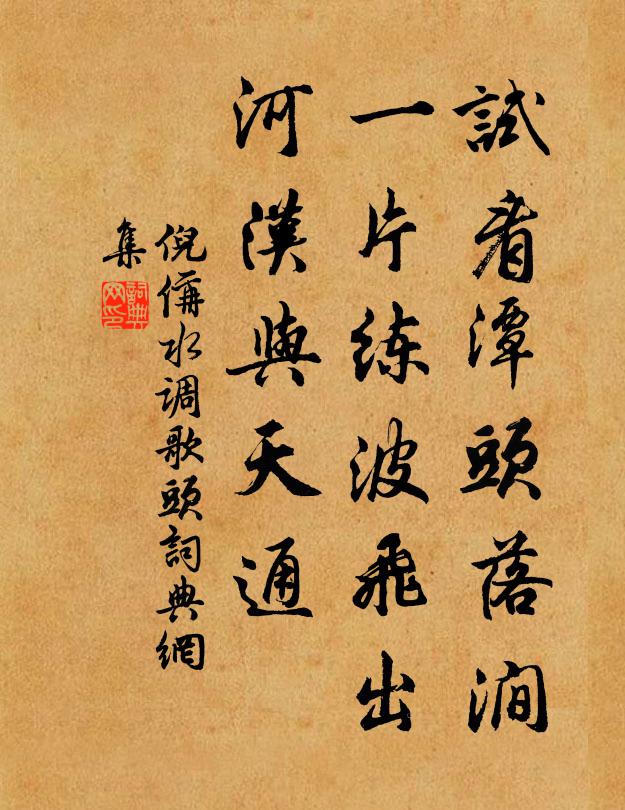 試看潭頭落澗
一片练波飛出
河漢與天通
倪偁水调歌頭詞典網
集
詞典
网印